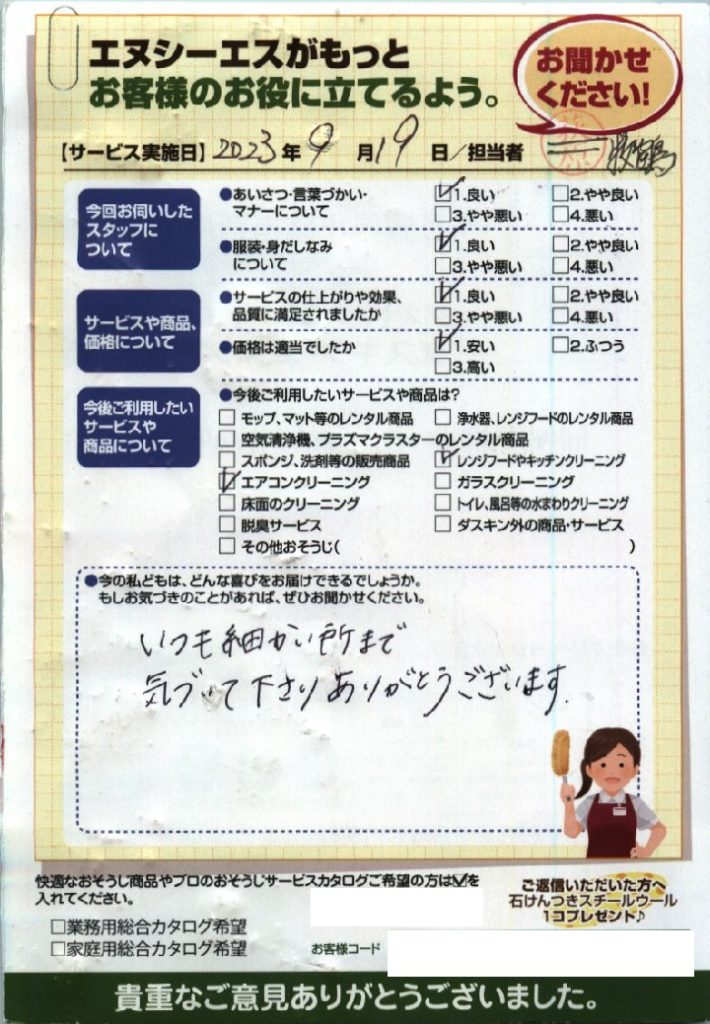 エヌシーエスがもっと
お客様のお役に立てるよう。
お聞かせ
ください!
【サービス実施日】2023年9月19日/担当者
今回お伺いした
スタッフに
ついて
●あいさつ・言葉づかい・
マナーについて
☑1.良い □2.やや良い
□3.やや悪い □4.悪い
●服装・身だしなみ
について
☑1.良い □2.やや良い
□3.やや悪い □4.悪い
サービスや商品、
価格について
●サービスの仕上がりや効果、
品質に満足されましたか
☑1.良い □2.やや良い
□3.やや悪い □4.悪い
●価格は適当でしたか
☑1.安い □2.ふつう
□3.高い
今後ご利用したい
サービスや
商品について
●今後ご利用したいサービスや商品は?
□ モップ、マット等のレンタル商品 □ 浄水器、レンジフードのレンタル商品
□ 空気清浄機、プラズマクラスターのレンタル商品
□ スポンジ、洗剤等の販売商品 ☑ レンジフードやキッチンクリーニング
☑ エアコンクリーニング □ ガラスクリーニング
□ 床面のクリーニング □ トイレ、風呂等の水まわりクリーニング
□ 脱臭サービス □ ダスキン外の商品・サービス
□ その他おそうじ( )
●今の私どもは、どんな喜びをお届けできるでしょうか。
もしお気づきのことがあれば、ぜひお聞かせください。
いつも細かい所まで
気づいて下さりありがとうございます.
快適なおそうじ商品やプロのおそうじサービスカタログご希望の方は☑を
入れてください。
□業務用総合カタログ希望
□家庭用総合カタログ希望
お客様コード
ご返信いただいた方へ
石けんつきスチールウール
1コプレゼント♪
貴重なご意見ありがとうございました。